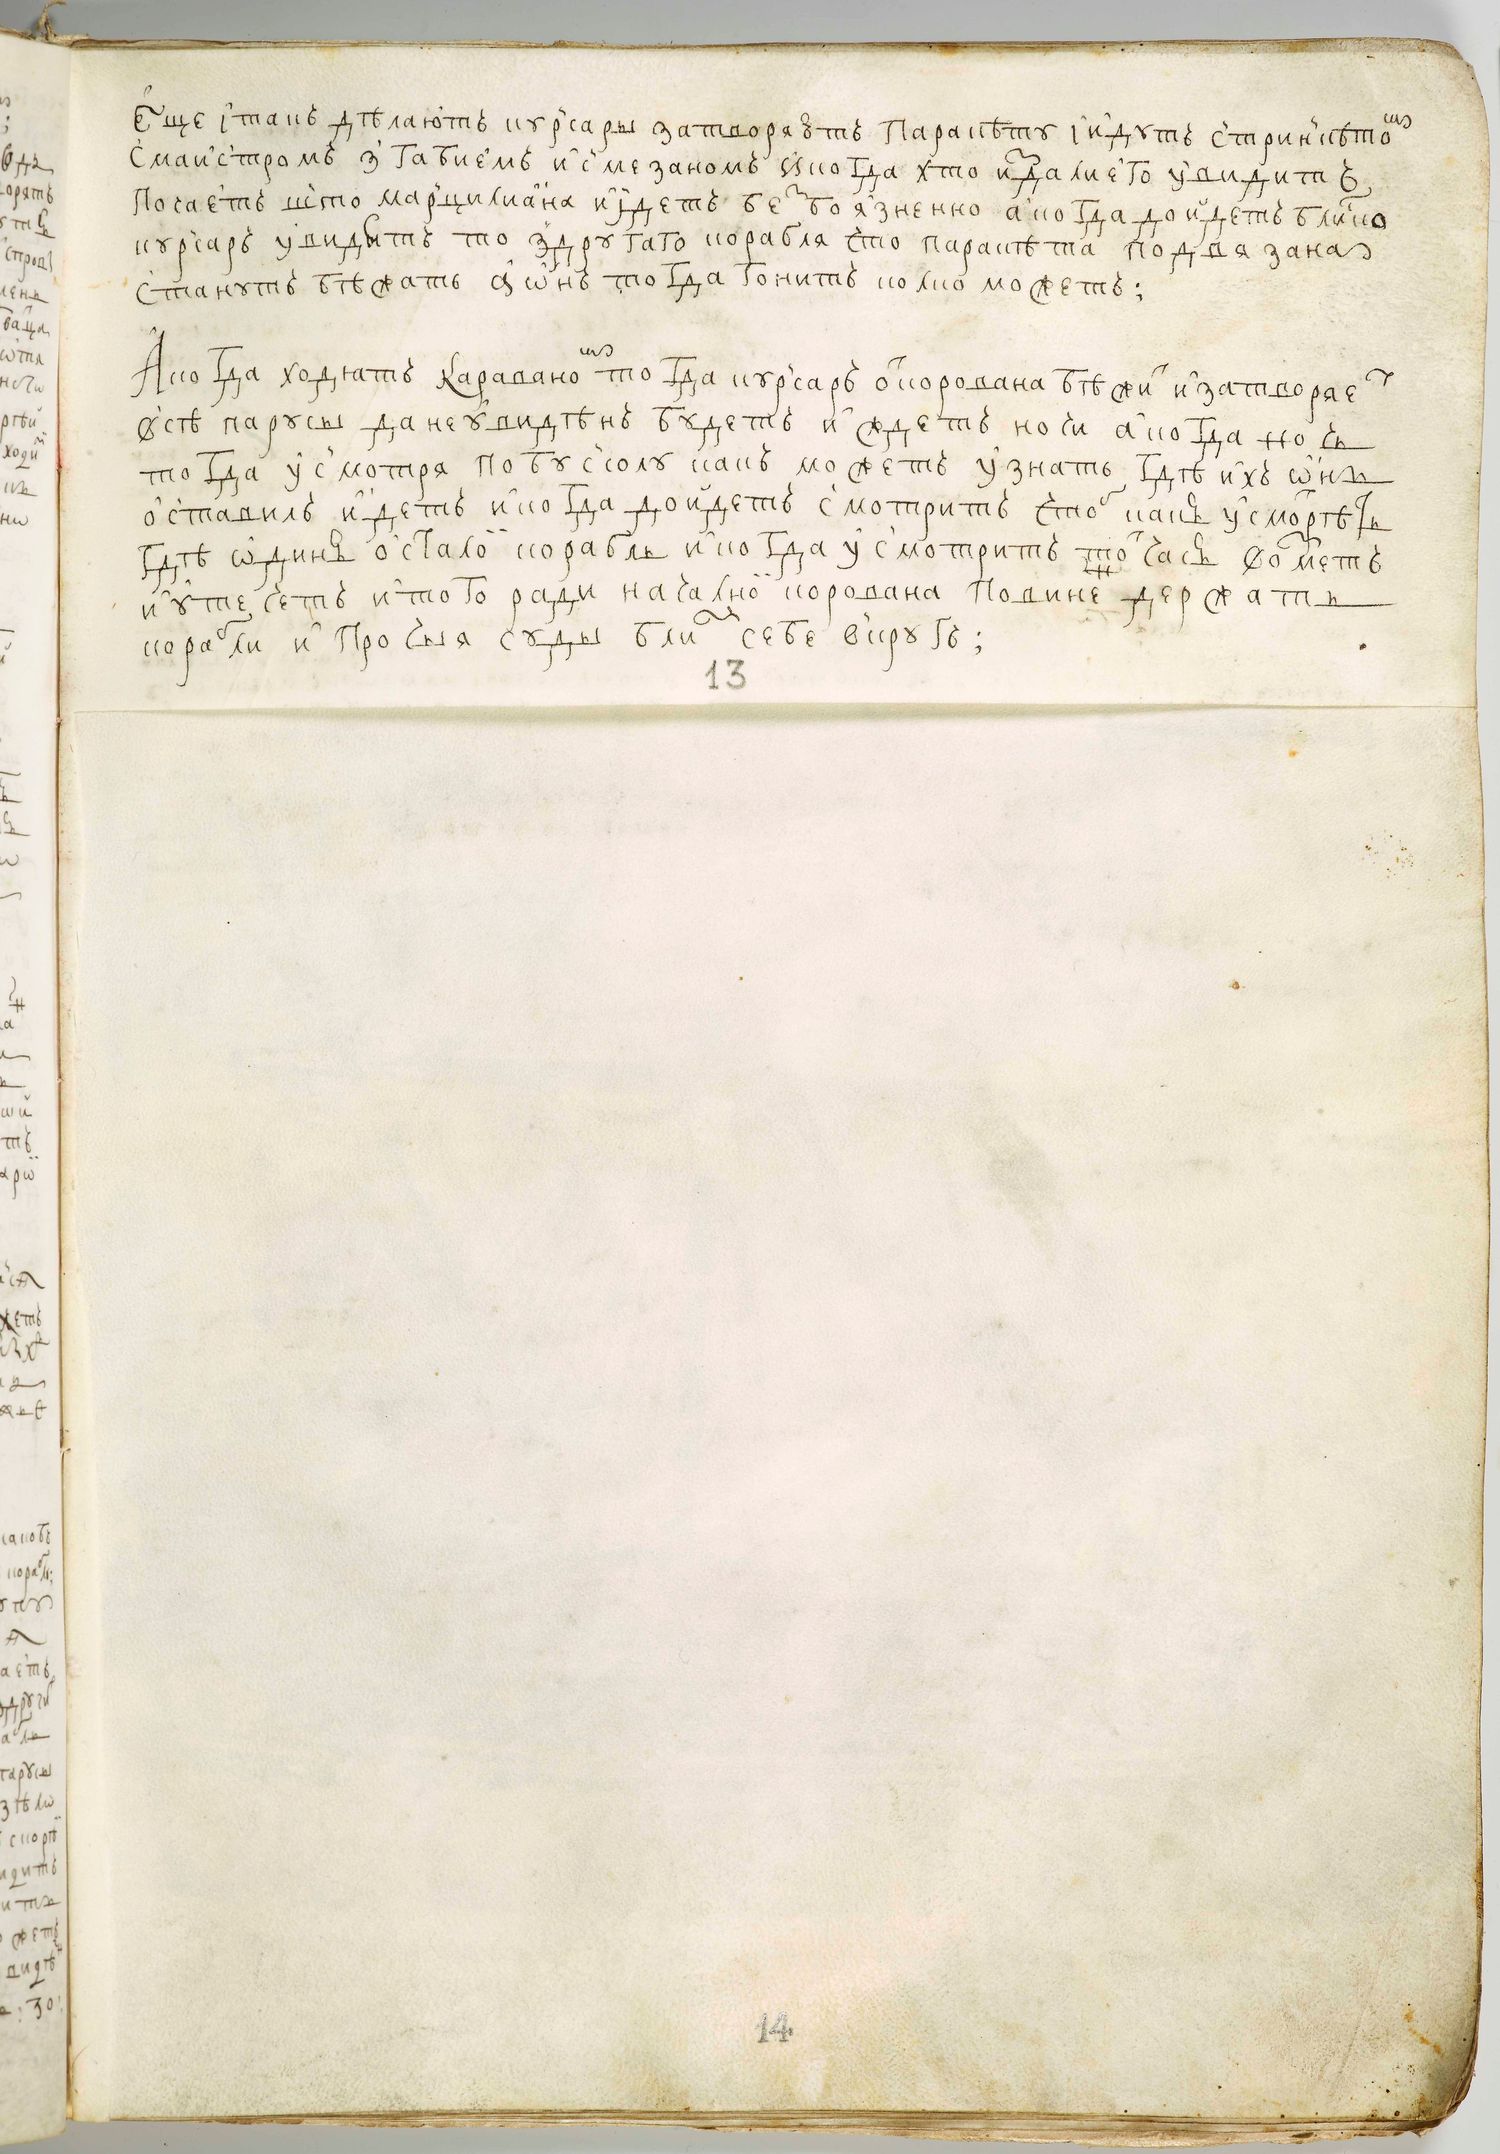 Еще ітакъ дѣлаютъ курсары затворяютъ Паракѣту іидутъ стринкѣтомъ
Смаистромъ з Габиемъ и смезаномъ Икогда хто издали его увидитъ
Почаетъ што марцилиана иідетъ безбоязненно акогда доидетъ близко
курсаръ увидитъ то здругаго корабля что паракѣта подвязана
Стануть бѣжать а онъ тогда гонитъ колко можетъ;
Акогда ходятъ Караваномъ тогда курсаръ откорована бѣжит изатворяет
всѣ парусы данеувидѣнъ будетъ и ждетъ ночи акогда ночь
тогда усмотря побусолу какъ можетъ узнать гдѣ ихъ онъ
оставилъ идетъ икогда доидетъ смотритъ чтоб какъ усмотрѣть
гдѣ одинъ осталои корабль икогда усмотритъ тотчасъ возметъ
иутечетъ итого ради началнои корована Повиненъ держать
корабли и Прочыя суды близ себе вкругъ;
13
14